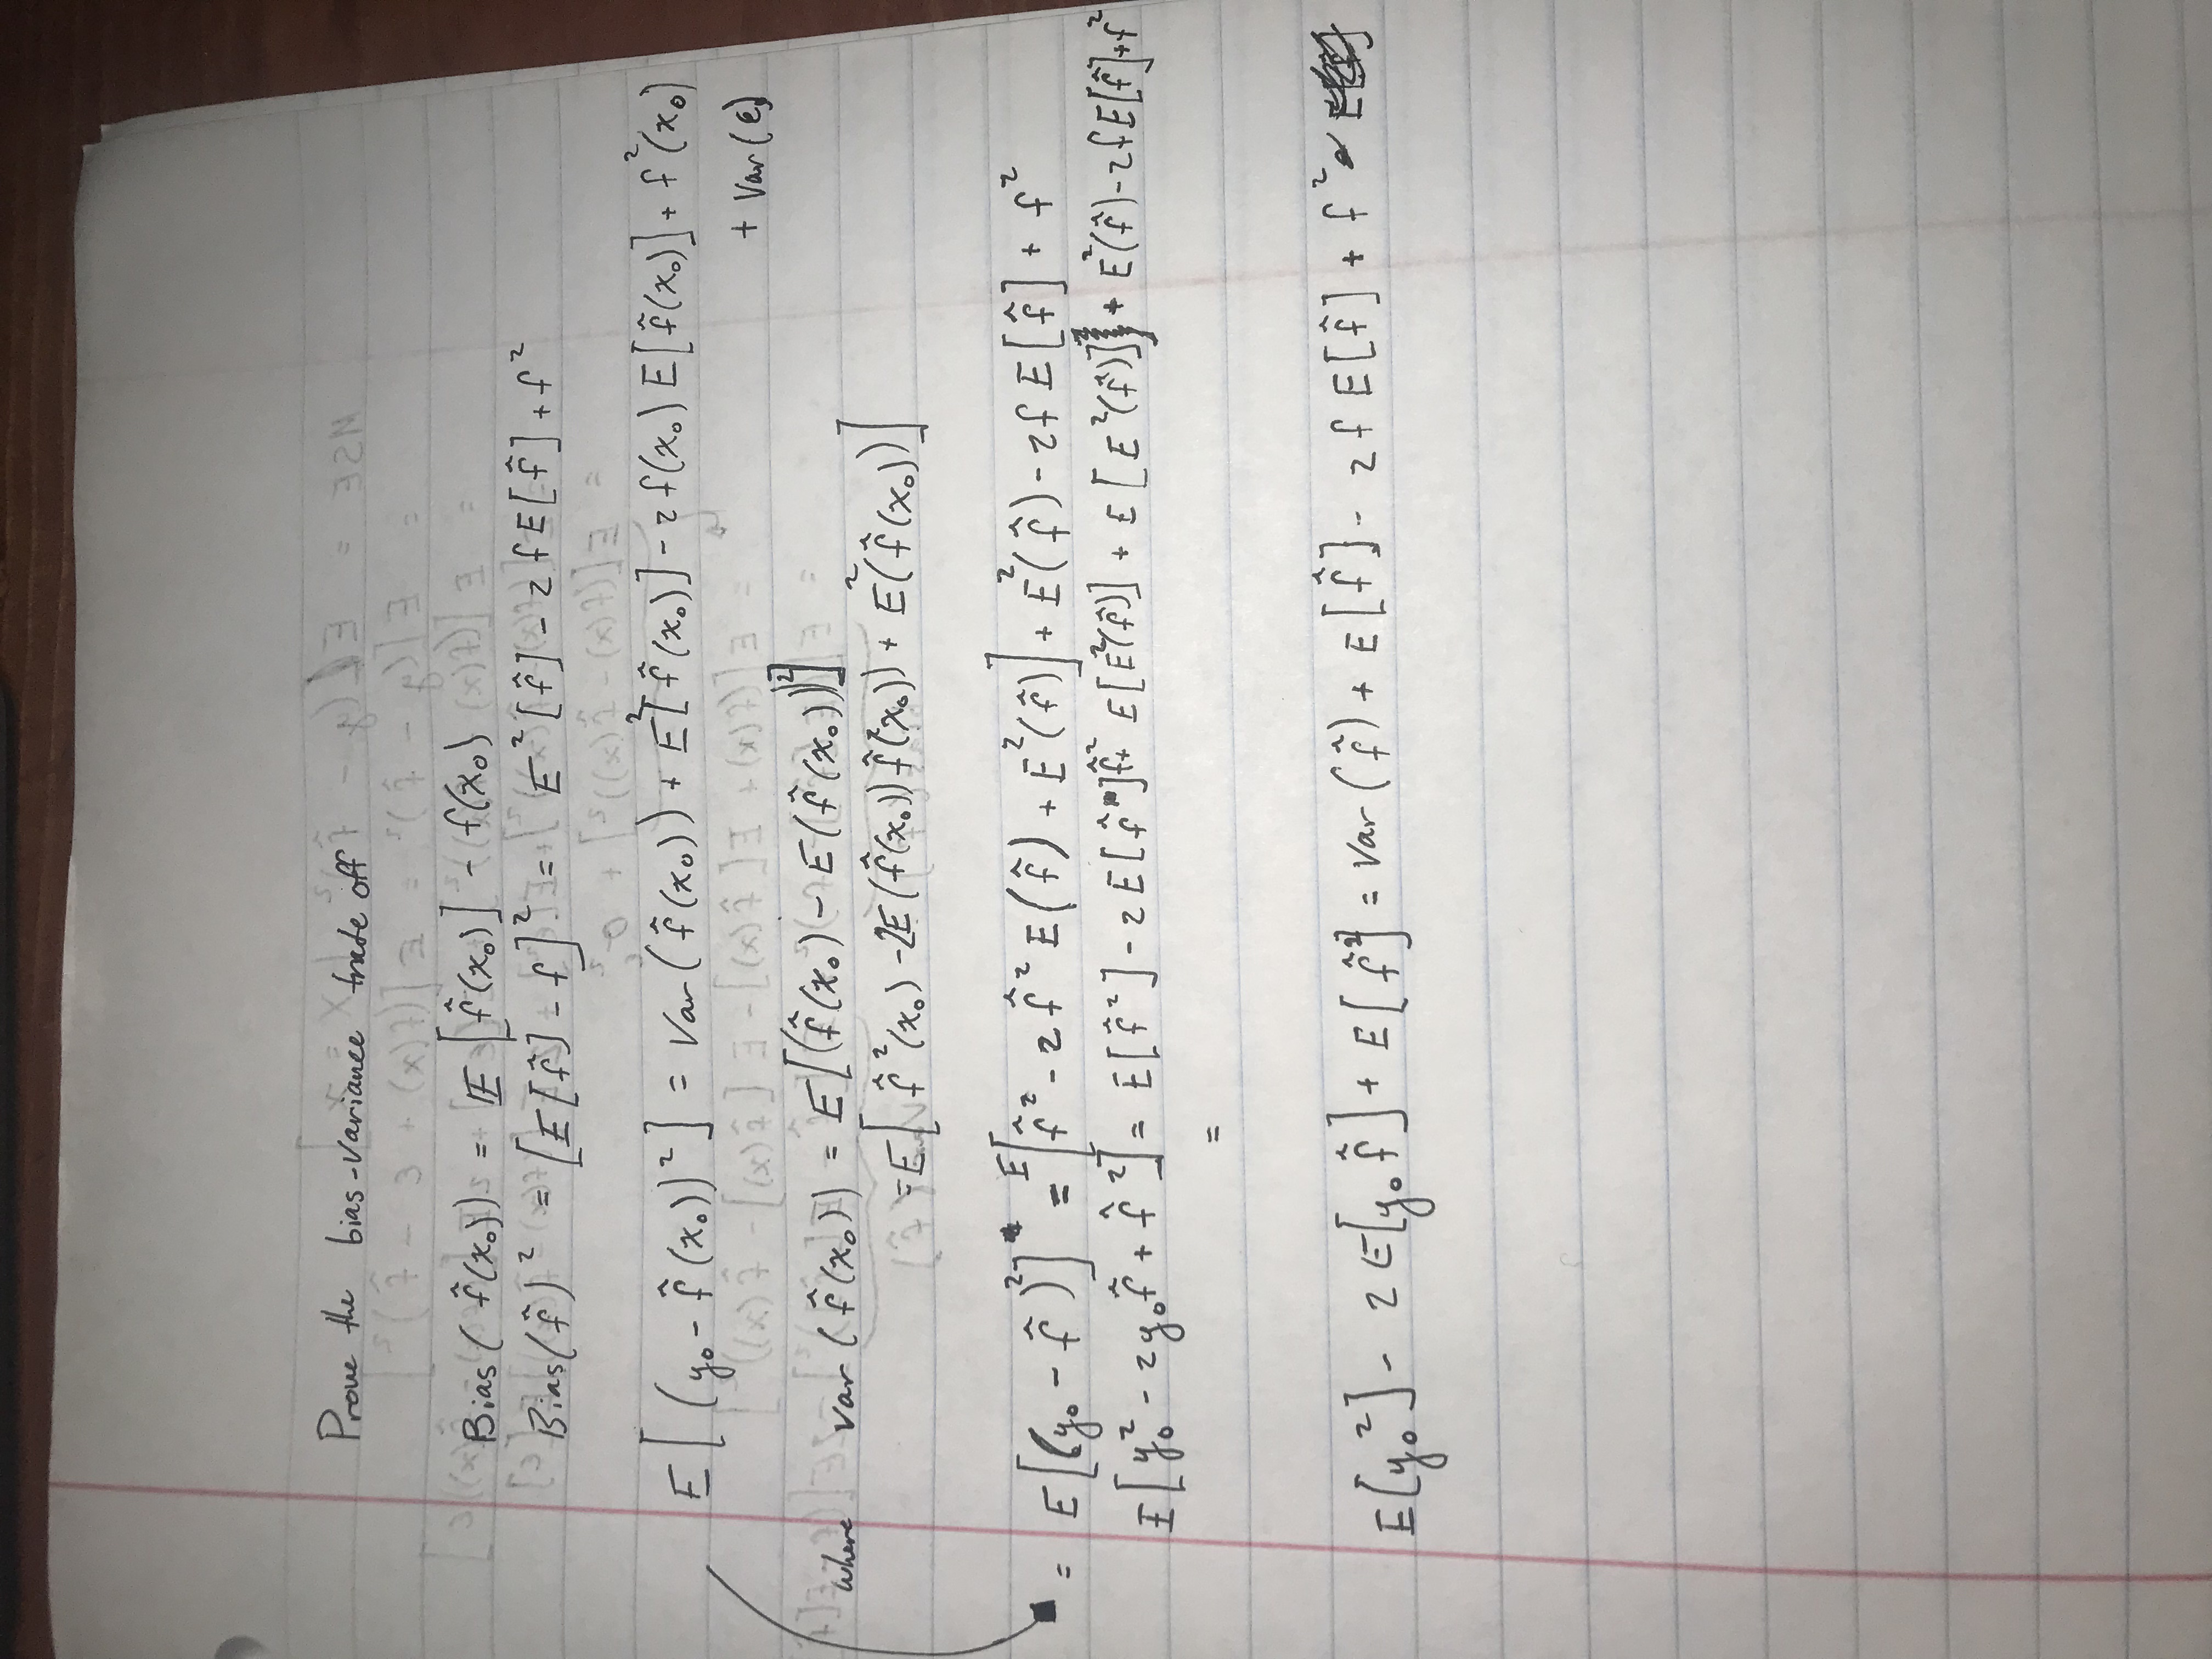 Prove the bias-variance trade off
Bias( f̂(x₀)) = E [f̂(x₀)] - f(x₀)
Bias(f̂)² = [E[f̂] - f]² = E²[f̂] - 2 f E[f̂] + f²
E[(y₀ - f̂(x₀))²] = Var(f̂(x₀)) + E²[f̂(x₀)] - 2 f(x₀) E[f̂(x₀)] + f²(x₀)
+ Var(ε)
where var(f̂(x₀)) = E[(f̂(x₀) - E(f̂(x₀)))²]
= E[f̂²(x₀) - 2E(f̂(x₀)) f̂(x₀)) + E²(f̂(x₀))]
= E[(y₀ - f̂)²] = E[f̂² - 2 f̂² E(f̂) + E²(f̂)] + E²(f̂) - 2f E[f̂] + f²
E[y₀² - 2y₀f̂ + f̂²] = E[f̂²] - 2 E[f̂] E[E²(f̂)] + E[E²(f̂)] + E²(f̂) - 2fE[f̂] + f²
=
E[y₀²] - 2 E[y₀ f̂] + E[f̂²] = Var(f̂) + E[f̂] - 2 f E[f̂] + f²